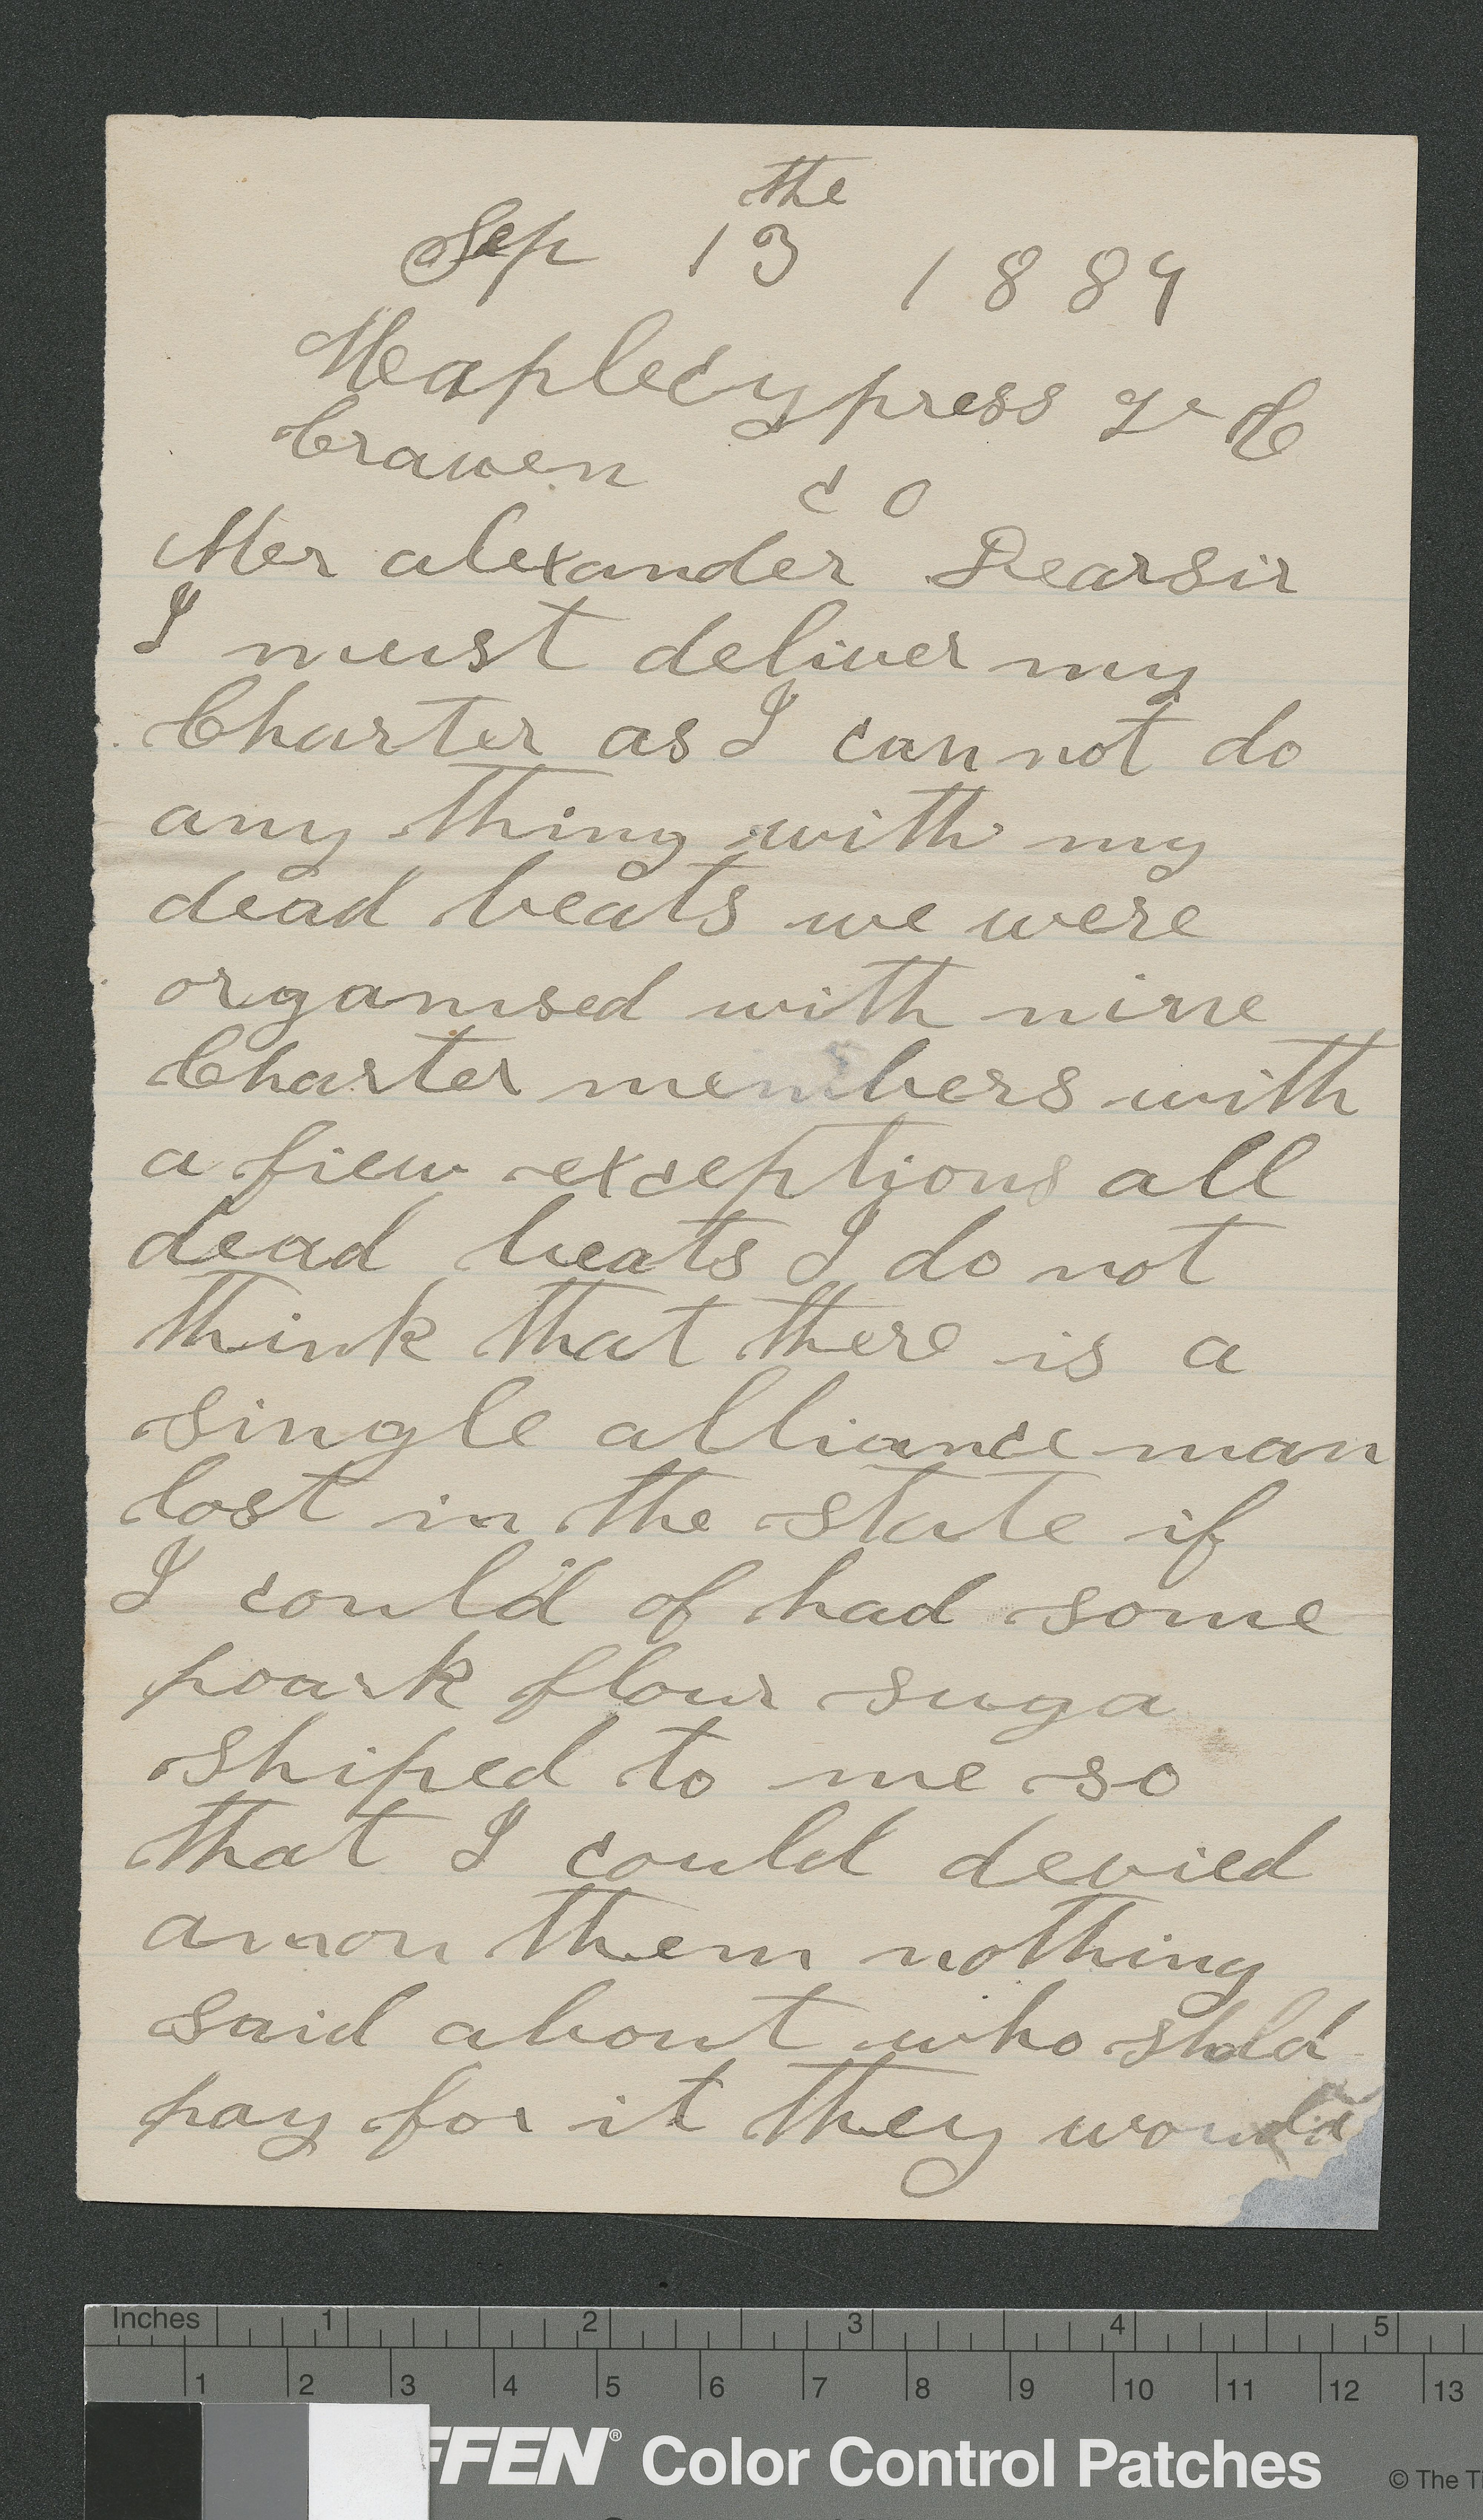 Sep 13 the 1889
Maplecypress N C
Craven co
Mer alexander Dearsir
I must deliver my
Charter as I can not do
any thing with my
dead beats we were
organised with nine
Charter members with
a fiew exceptions all
dead beats I do not
think that there is a
single alliance man
lost in the state if
I could of had some
poark flour suga
shiped to me so
that I could devied
amon them nothing
said about who shold
pay for it they would
Inches 1 2 3 4 5
1 2 3 4 5 6 7 8 9 10 11 12 13
FFEN® Color Control Patches © The T